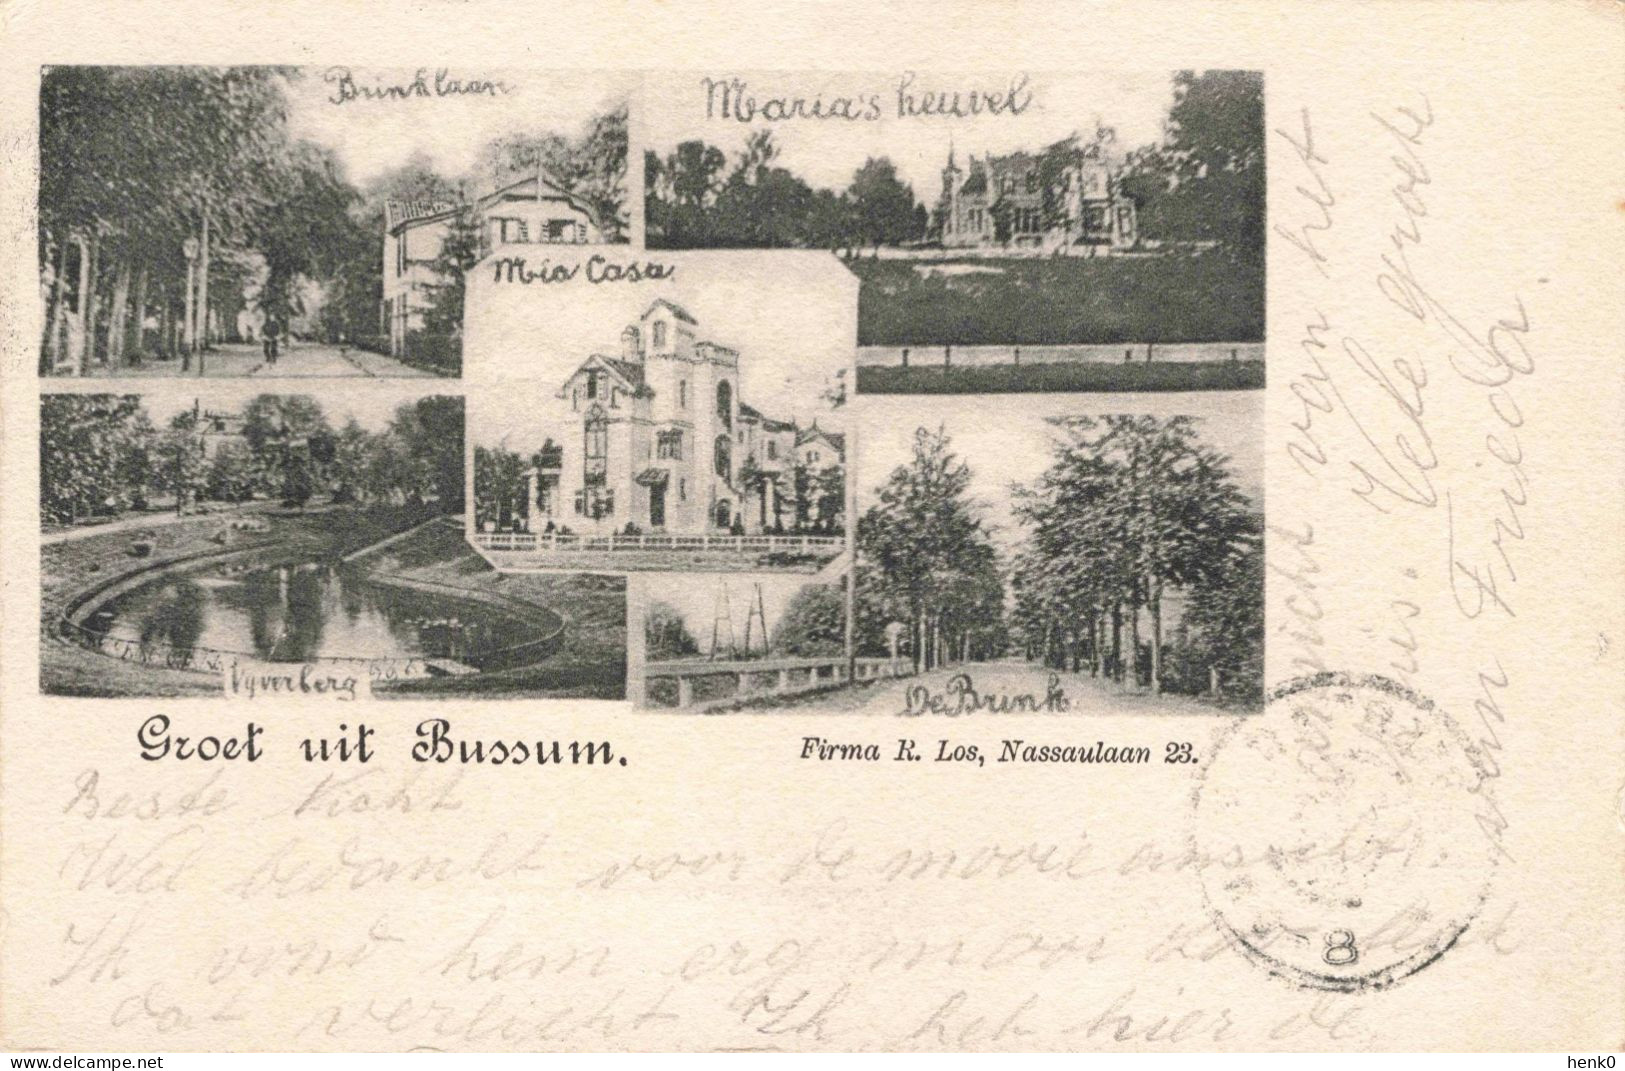 Brinklaan
Maria's heuvel
Mia Casa.
Vyverberg
De Brink
Groet uit Bussum.
Firma R. Los, Nassaulaan 23.
Beste
Wel bedankt voor de mooie ansicht.
Ik vond hem erg mooi
dat verlicht Ik heb hier de
van het
Vele groete
van Frieda.
8
delcampe.net
henk0